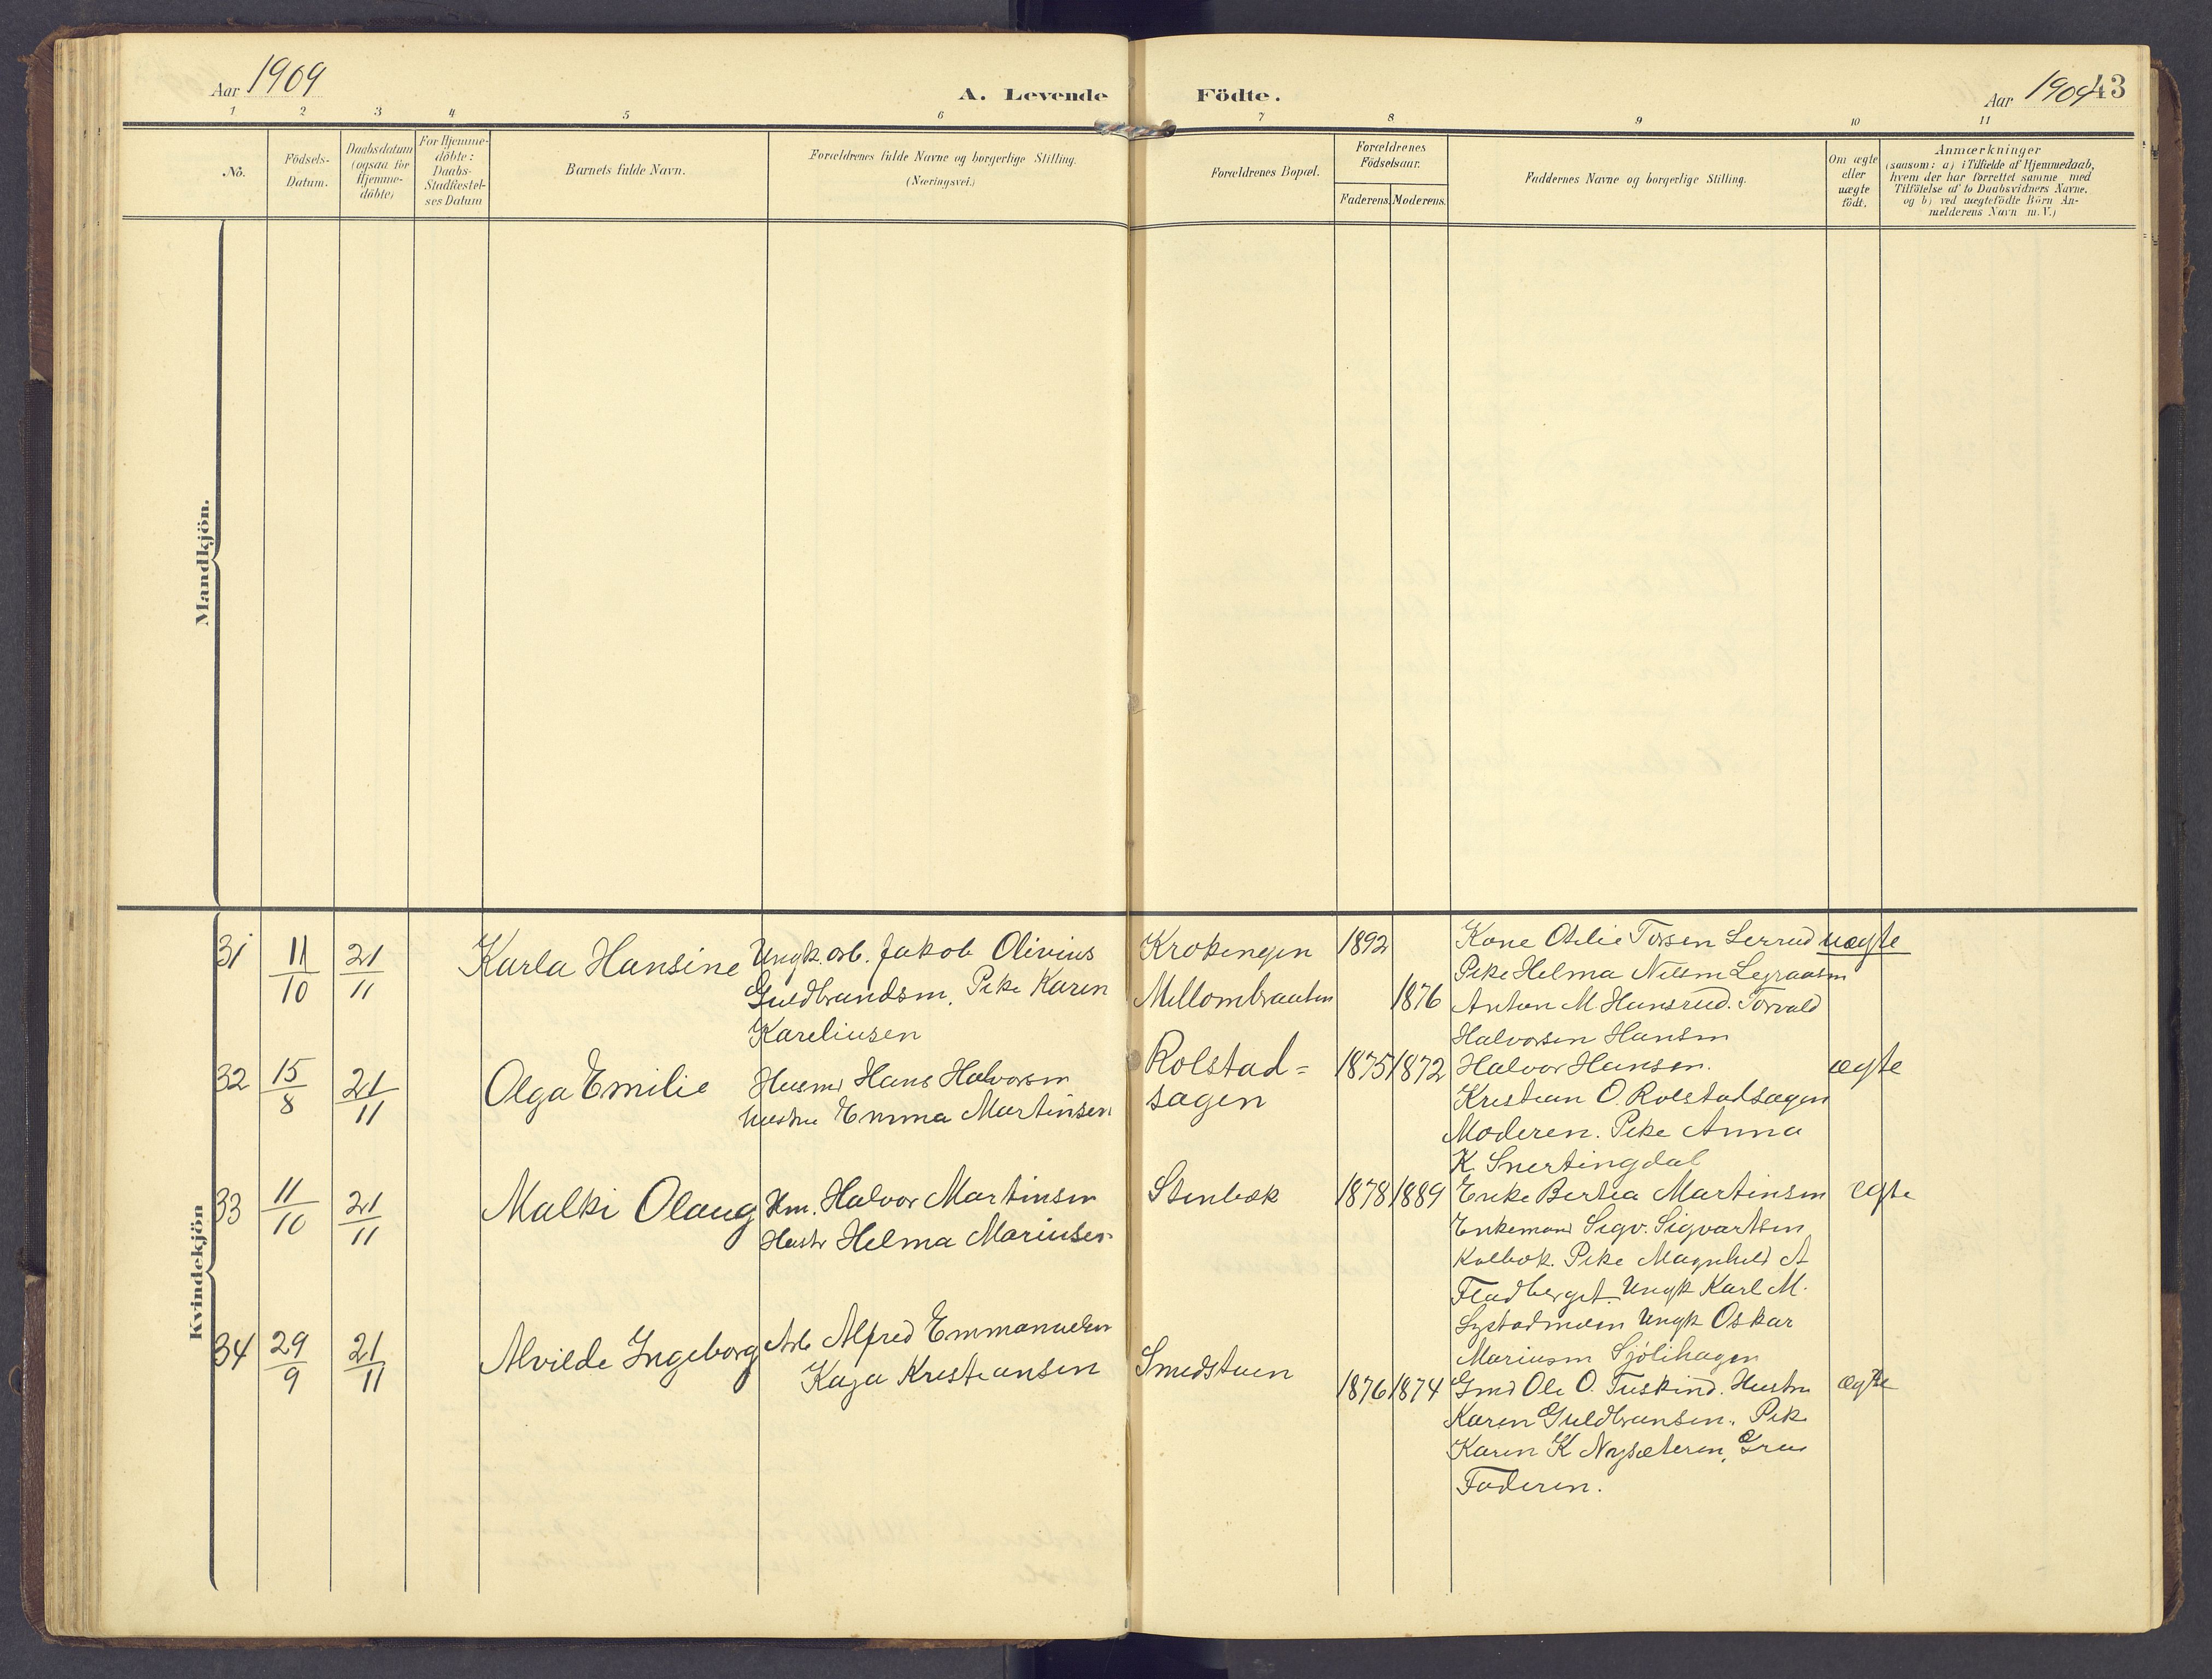 Aar 1909
A. Levende Födte.
Aar 1909 43
1 2 3 4 5 6 7 8 9 10 11
No.
Födsels-
Datum.
Daabsdatum
(ogsaa for
Hjemme-
döbte)
For Hjemme-
döbte:
Daabs-
Stadfæstel-
ses Datum
Barnets fulde Navn.
Forældrenes fulde Navne og borgerlige Stilling.
(Næringsvei.)
Forældrenes Bopæl.
Forældrenes
Födselsaar.
Faderens. Moderens.
Faddernes Navne og borgerlige Stilling.
Om ægte
eller
uægte
födt.
Anmærkninger
(saasom: a) i Tilfælde af Hjemmedaab,
hvem der har forrettet samme med
Tilföielse af to Daabsvidners Navne.
og b) ved uægtefödte Börn An-
melderens Navn m. V.)
Mandkjön.
Kvindekjön
31 11/10 21/11 Karla Hansine
Ungk. arb. Jakob Olivius
Guldbrandsen, Pike Karen
Kareliusen
Krokengen
Mellombraaten
1892
1876
Kone Otilie Torsen Lerrud
Pike Helma Nilsen
Anton M. Hansrud. Torvald
Halvorsen Hansen
uægte
32 15/8 21/11 Olga Emilie
Husmd Hans Halvorsen
Hustru Emma Martinsen
Rolstad=
sagen
1875 1872
Halvor Hansen.
Kristian O. Rolstadsagen
Moderen. Pike Anna
K. Snertingdal
ægte
33 11/10 21/11 Malki Olaug
Hm. Halvor Martinsen
Hustr Helma Mariusen
Stenbæk
1878 1889
Enke Bertea Martinsen
Enkemand Sigv. Sigvartsen
Kolbæk. Pike Magnhild A
Fladberget. Ungk Karl M.
Ungk Oskar
Mariusen Sjölihagen
ægte
34 29/9 21/11 Alvilde Ingeborg
Arb Alfred Emmanuelsen
Kaja Kristiansen
Smedstuen
1876 1874
Gmd Ole O. Tuskind. Hustru
Karen Guldbransen. Pik
Karen K Nysæteren,
Faderen.
ægte